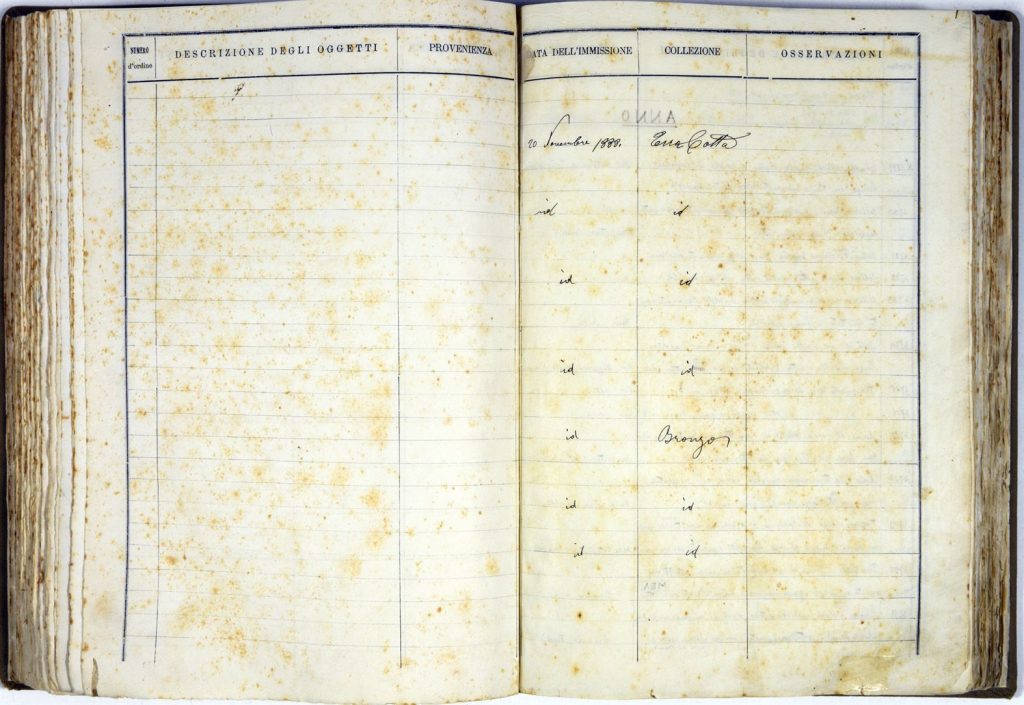 NUMERO d'ordine DESCRIZIONE DEGLI OGGETTI PROVENIENZA DATA DELL'IMMISSIONE COLLEZIONE OSSERVAZIONI
ANNO
20 Novembre 1889. Terra Cotta
id id
id id
id id
id Bronzo
id id
id id